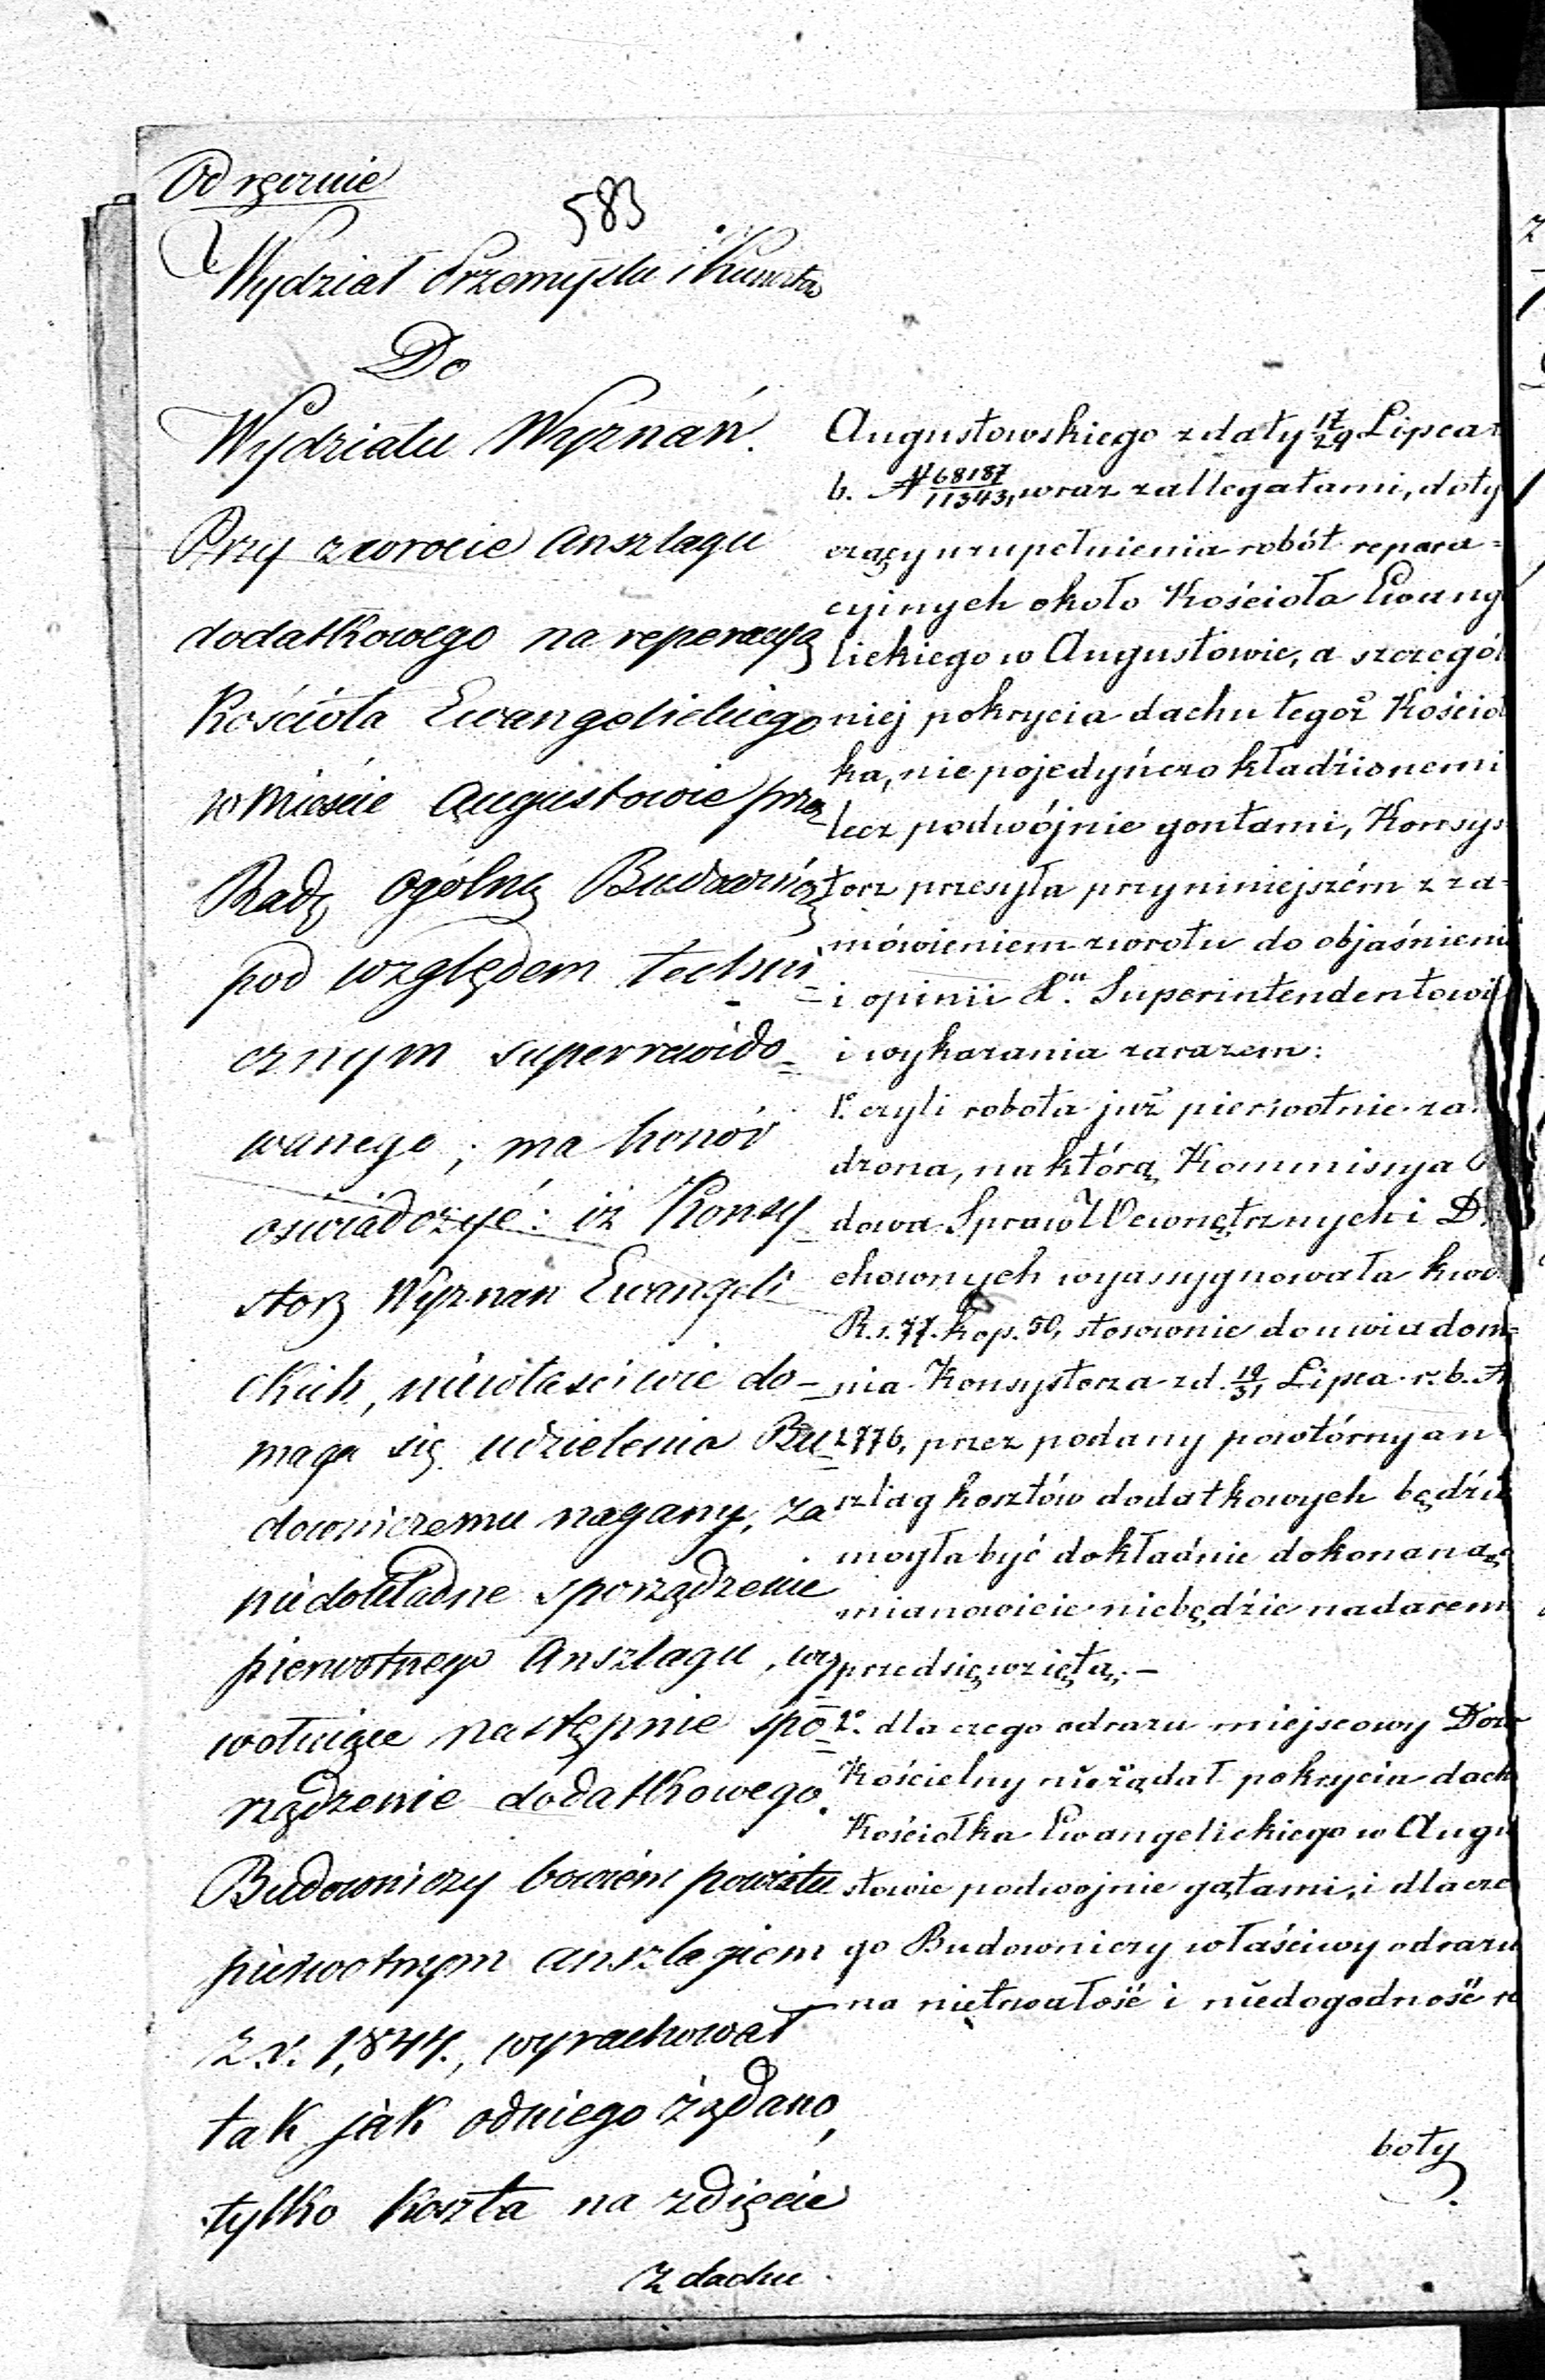 Odręcznie
583
Wydział Przemysłu i Kunsztu
Do
Wydziału Wyznań.
Przy zwrocie anszlagu
dodatkowego na reperacyą
Kościoła Ewangelickiego
w mieście Augustowie przez
Radę Ogólną Budowniczą
pod względem techni=
cznym superrewido=
wanego; ma honor
oświadczyć: iż Konsy=
storz Wyznań Ewangeli
ckich, niewłaściwie do=
maga się udzielenia Bu=
downiczemu nagany, za
niedokładne sporządzenie
pierwotnego Anszlagu, wy=
wołujące następnie spo=
rządzenie dodatkowego.
Budowniczy bowiem powiatu
pierwotnym anszlagiem
z r. 1,844., wyrachował
tak jak odniego żądano,
tylko koszta na zdięcie
z dachu
Augustowskiego z daty 17/29 Lipca r.
b. N 68187/11343, wraz z allegatami, doty
czący uzupełnienia robót repara=
cyjnych około Kościoła Ewang
lickiego w Augustowie, a szczegól
niej pokrycia dachu tegoż Kościoł
ka, nie pojedyńczo kładzionemi
lecz podwójnie gontami, Konsys
torz przesyła przy niniejszém z za=
mówieniem zwrotu do objaśnieni
i opinii Xu. Superintendentowi
i wykazania zarazem:
1o. czyli robota już pierwotnie za
dzona, na którą Kommissya
dowa Spraw Wewnętrznych i D
chownych wyassygnowała kwo
R.s. 77. kop. 50, stosownie do uwiadom=
nia Konsystorza z d. 19/31 Lipca r. b. N
2776, przez podany powtórny an
szlag kosztów dodatkowych będzie
mogła być dokładnie dokonaną,
mianowicie niebędzie nadarem
przedsięwziętą.—
2o. dla czego odrazu miejscowy Dozó
Kościelny nieżądał pokrycia dach
Kościołka Ewangelickiego w Augu
stowie podwojnie gątami, i dla cze
go Budowniczy właściwy odrazu
na nietrwałość i niedogodność ro
boty